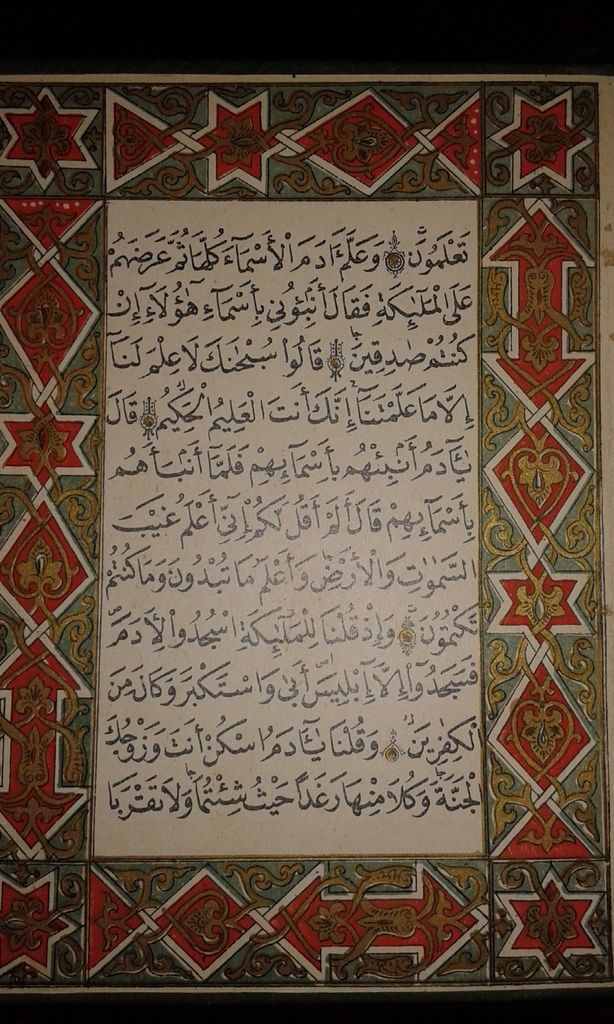 تَعْلَمُونَ وَعَلَّمَ ءَادَمَ الْأَسْمَاءَ كُلَّهَا ثُمَّ عَرَضَهُمْ
عَلَى الْمَلَٰئِكَةِ فَقَالَ أَنْبِئُونِي بِأَسْمَاءِ هَٰؤُلَاءِ إِن
كُنتُمْ صَٰدِقِينَ قَالُوا سُبْحَٰنَكَ لَا عِلْمَ لَنَا
إِلَّا مَا عَلَّمْتَنَا إِنَّكَ أَنتَ الْعَلِيمُ الْحَكِيمُ قَالَ
يَٰٓـَٔادَمُ أَنْبِئْهُم بِأَسْمَائِهِمْ فَلَمَّا أَنْبَأَهُم
بِأَسْمَائِهِمْ قَالَ أَلَمْ أَقُل لَكُمْ إِنِّي أَعْلَمُ غَيْبَ
السَّمَٰوَٰتِ وَالْأَرْضِ وَأَعْلَمُ مَا تُبْدُونَ وَمَا كُنتُمْ
تَكْتُمُونَ وَإِذْ قُلْنَا لِلْمَلَٰئِكَةِ اسْجُدُوا لِأَدَمَ
فَسَجَدُوا إِلَّا إِبْلِيسَ أَبَىٰ وَاسْتَكْبَرَ وَكَانَ مِنَ
الْكَٰفِرِينَ وَقُلْنَا يَٰٓـَٔادَمُ اسْكُنْ أَنتَ وَزَوْجُكَ
الْجَنَّةَ وَكُلَا مِنْهَا رَغَدًا حَيْثُ شِئْتُمَا وَلَا تَقْرَبَا